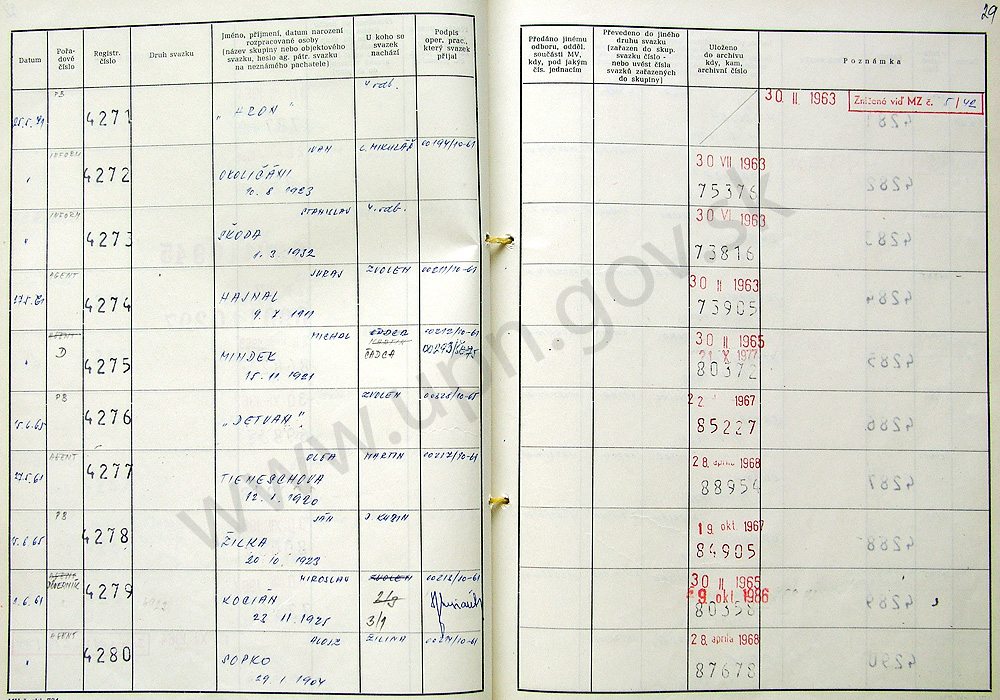 29
Datum
Pořa-
dové
číslo
Registr.
číslo
Druh svazku
Jméno, příjmení, datum narození
rozpracované osoby
(název skupiny nebo objektového
svazku, heslo ag. pátr. svazku
na neznámého pachatele)
U koho se
svazek
nachází
Podpis
oper. prac.,
který svazek
přijal
Předáno jinému
odboru, odděl.
součásti MV,
kdy, pod jakým
čís. jednacím
Převedeno do jiného
druhu svazku
(zařazen do skup.
svazku číslo -
nebo uvést čísla
svazků zařazených
do skupiny)
Uloženo
do archivu
kdy, kam,
archivní číslo
Poznámka
PB
4271
„HRON"
4. odb.
30. II. 1963
Zničené viď MZ č. 5/42
INFORM
4272
IVAN
OKOLIČÁNI
10. 8. 1923
L. MIKULÁŠ
00194/10-61
30 VII 1963
75376
INFORM
4273
STANISLAV
ŠKODA
1. 3. 1932
4. odb.
30 VI 1963
73816
AGENT
27.5.61
4274
JURAJ
HAJNAL
ZVOLEN
30 II 1963
73905
AGENT
D
4275
MICHAL
MINDEK
15. 11. 1921
ČADCA
00212/10-61
30 II 1965
21 X 1977
80372
PB
4276
„DETVAN"
ZVOLEN
1967
85227
AGENT
27.5.61
4277
OLGA
12. 1. 1920
MARTIN
00217/10-61
28. apríla 1968
88954
PB
4278
JÁN
ŽILKA
20. 10. 1923
D. KUBÍN
19. okt. 1967
84905
AGENT
4279
MIROSLAV
KOCIÁN
ZVOLEN
3/1
00212/10-61
30 II 1965
9. okt. 1986
80358
AGENT
4280
ALOJZ
SOPKO
29. 1. 1904
ŽILINA
28. apríla 1968
87678
www.upn.gov.sk